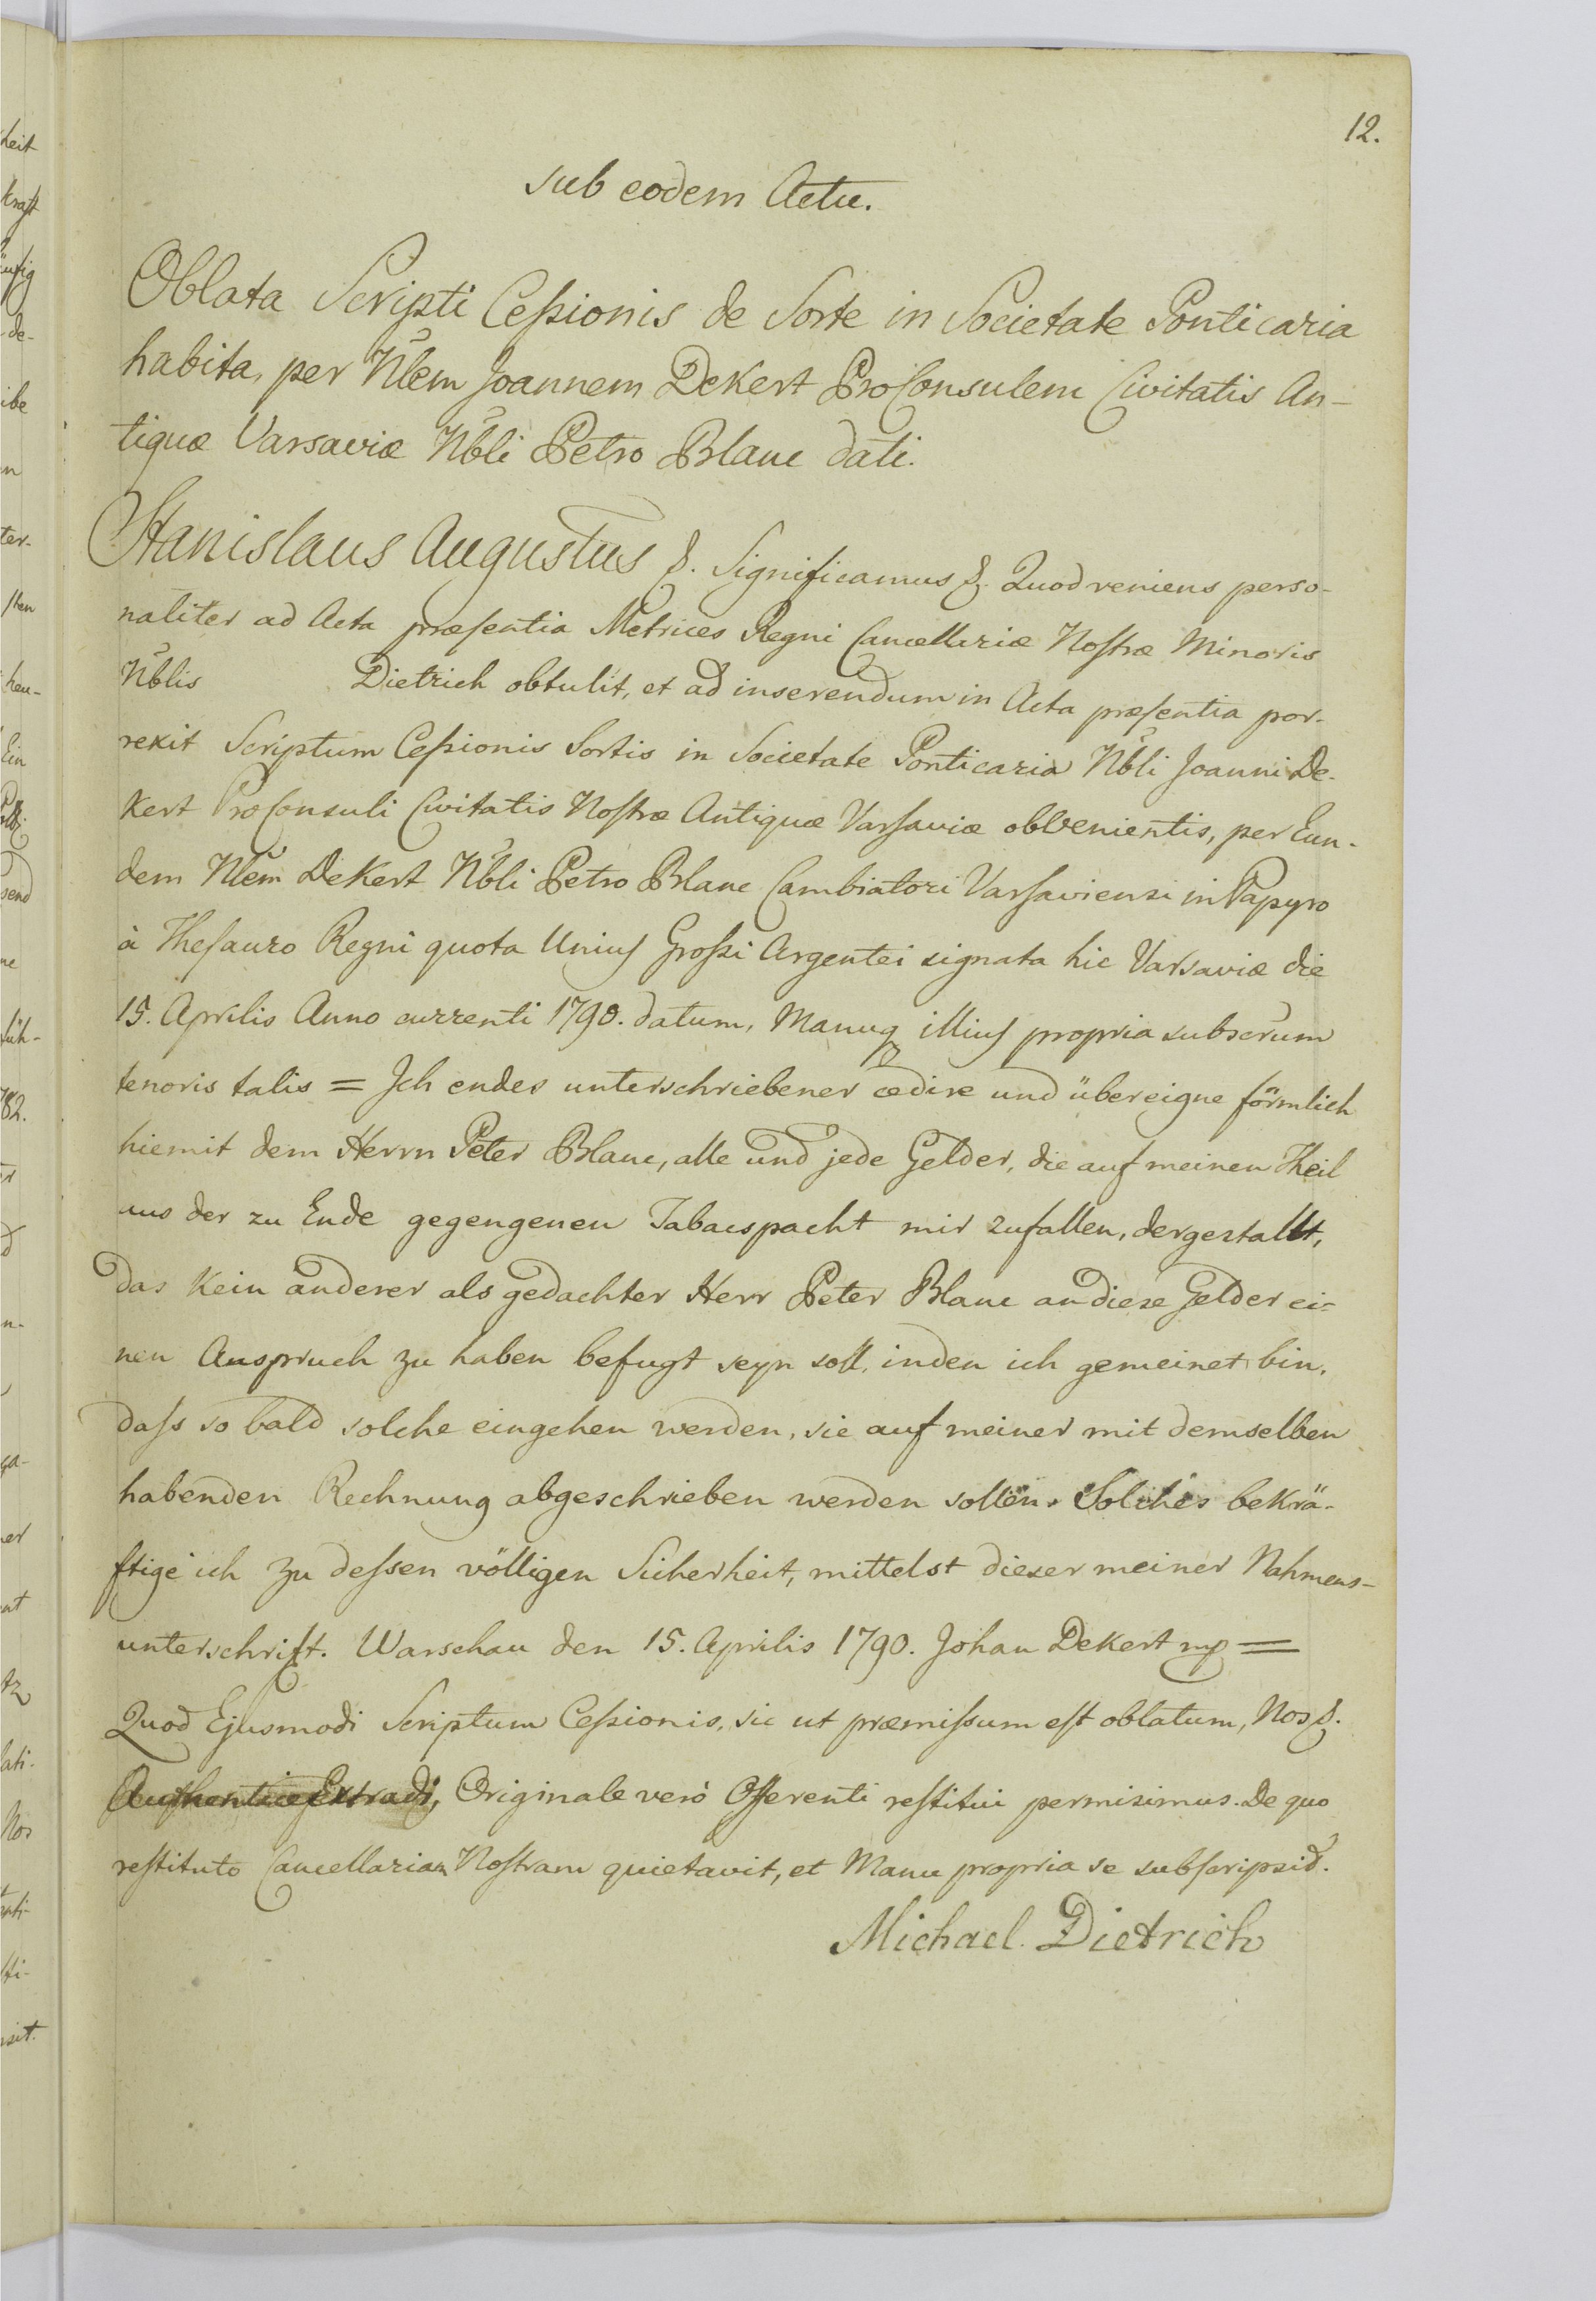 12.
sub eodem Actu.
Oblata Scripti Ceſsionis de Sorte in Societate Ponticaria
habita, per Nblem Joannem Dekert ProConsulem Civitatis An-
tiquæ Varsaviæ Nbli Petro Blanc dati.
Stanislaus Augustus &. Significamus &. Quod veniens perso-
naliter ad Acta præſentia Metrices Regni Cancellariæ Noſtræ Minoris
Nblis Dietrich obtulit, et ad inserendum in Acta præſentia por-
rexit Scriptum Ceſsionis Sortis in Societate Ponticaria Nbli Joanni De-
kert ProConsuli Civitatis Noſtræ Antiquæ Varſaviæ obvenientis, per Eun-
dem Nblem Dekert Nbli Petro Blanc Cambiatori Varſaviensi in Papyro
à Theſauro Regni quota Unius Groſsi Argentei signata hic Varsaviæ die
15. Aprilis Anno currenti 1790. datum, Manuq illius propria subscrum
tenoris talis = Ich endes unterschriebener cedire und übereigne förmlich
hiemit dem Herrn Peter Blanc, alle und jede Gelder, die auf meinen Theil
aus der zu Ende gegengenen Tabacspacht mir zufallen, dergestallt,
das kein anderer als gedachter Herr Peter Blanc an diese Gelder ei-
nen Anspruch zu haben befugt seyn soll, inden ich gemeinet bin,
daſs so bald solche eingehen werden, sie auf meiner mit demselben
habenden Rechnung abgeschrieben werden sollen. Solches bekrä-
ftige ich zu deſsen völligen Sicherheit, mittelst dieser meiner Nahmens-
unterschrift. Warschau den 15. Aprilis 1790. Johan Dekert mp =
Quod Ejusmodi Scriptum Ceſsionis, sic ut præmiſsum eſt oblatum, Nos &.
Authentice Extradi, Originale verò Offerenti reſtitui permisimus. De quo
reſtituto Cancellariam Noſtram quietavit, et Manu propria se subſcripsit.
Michael Dietrich